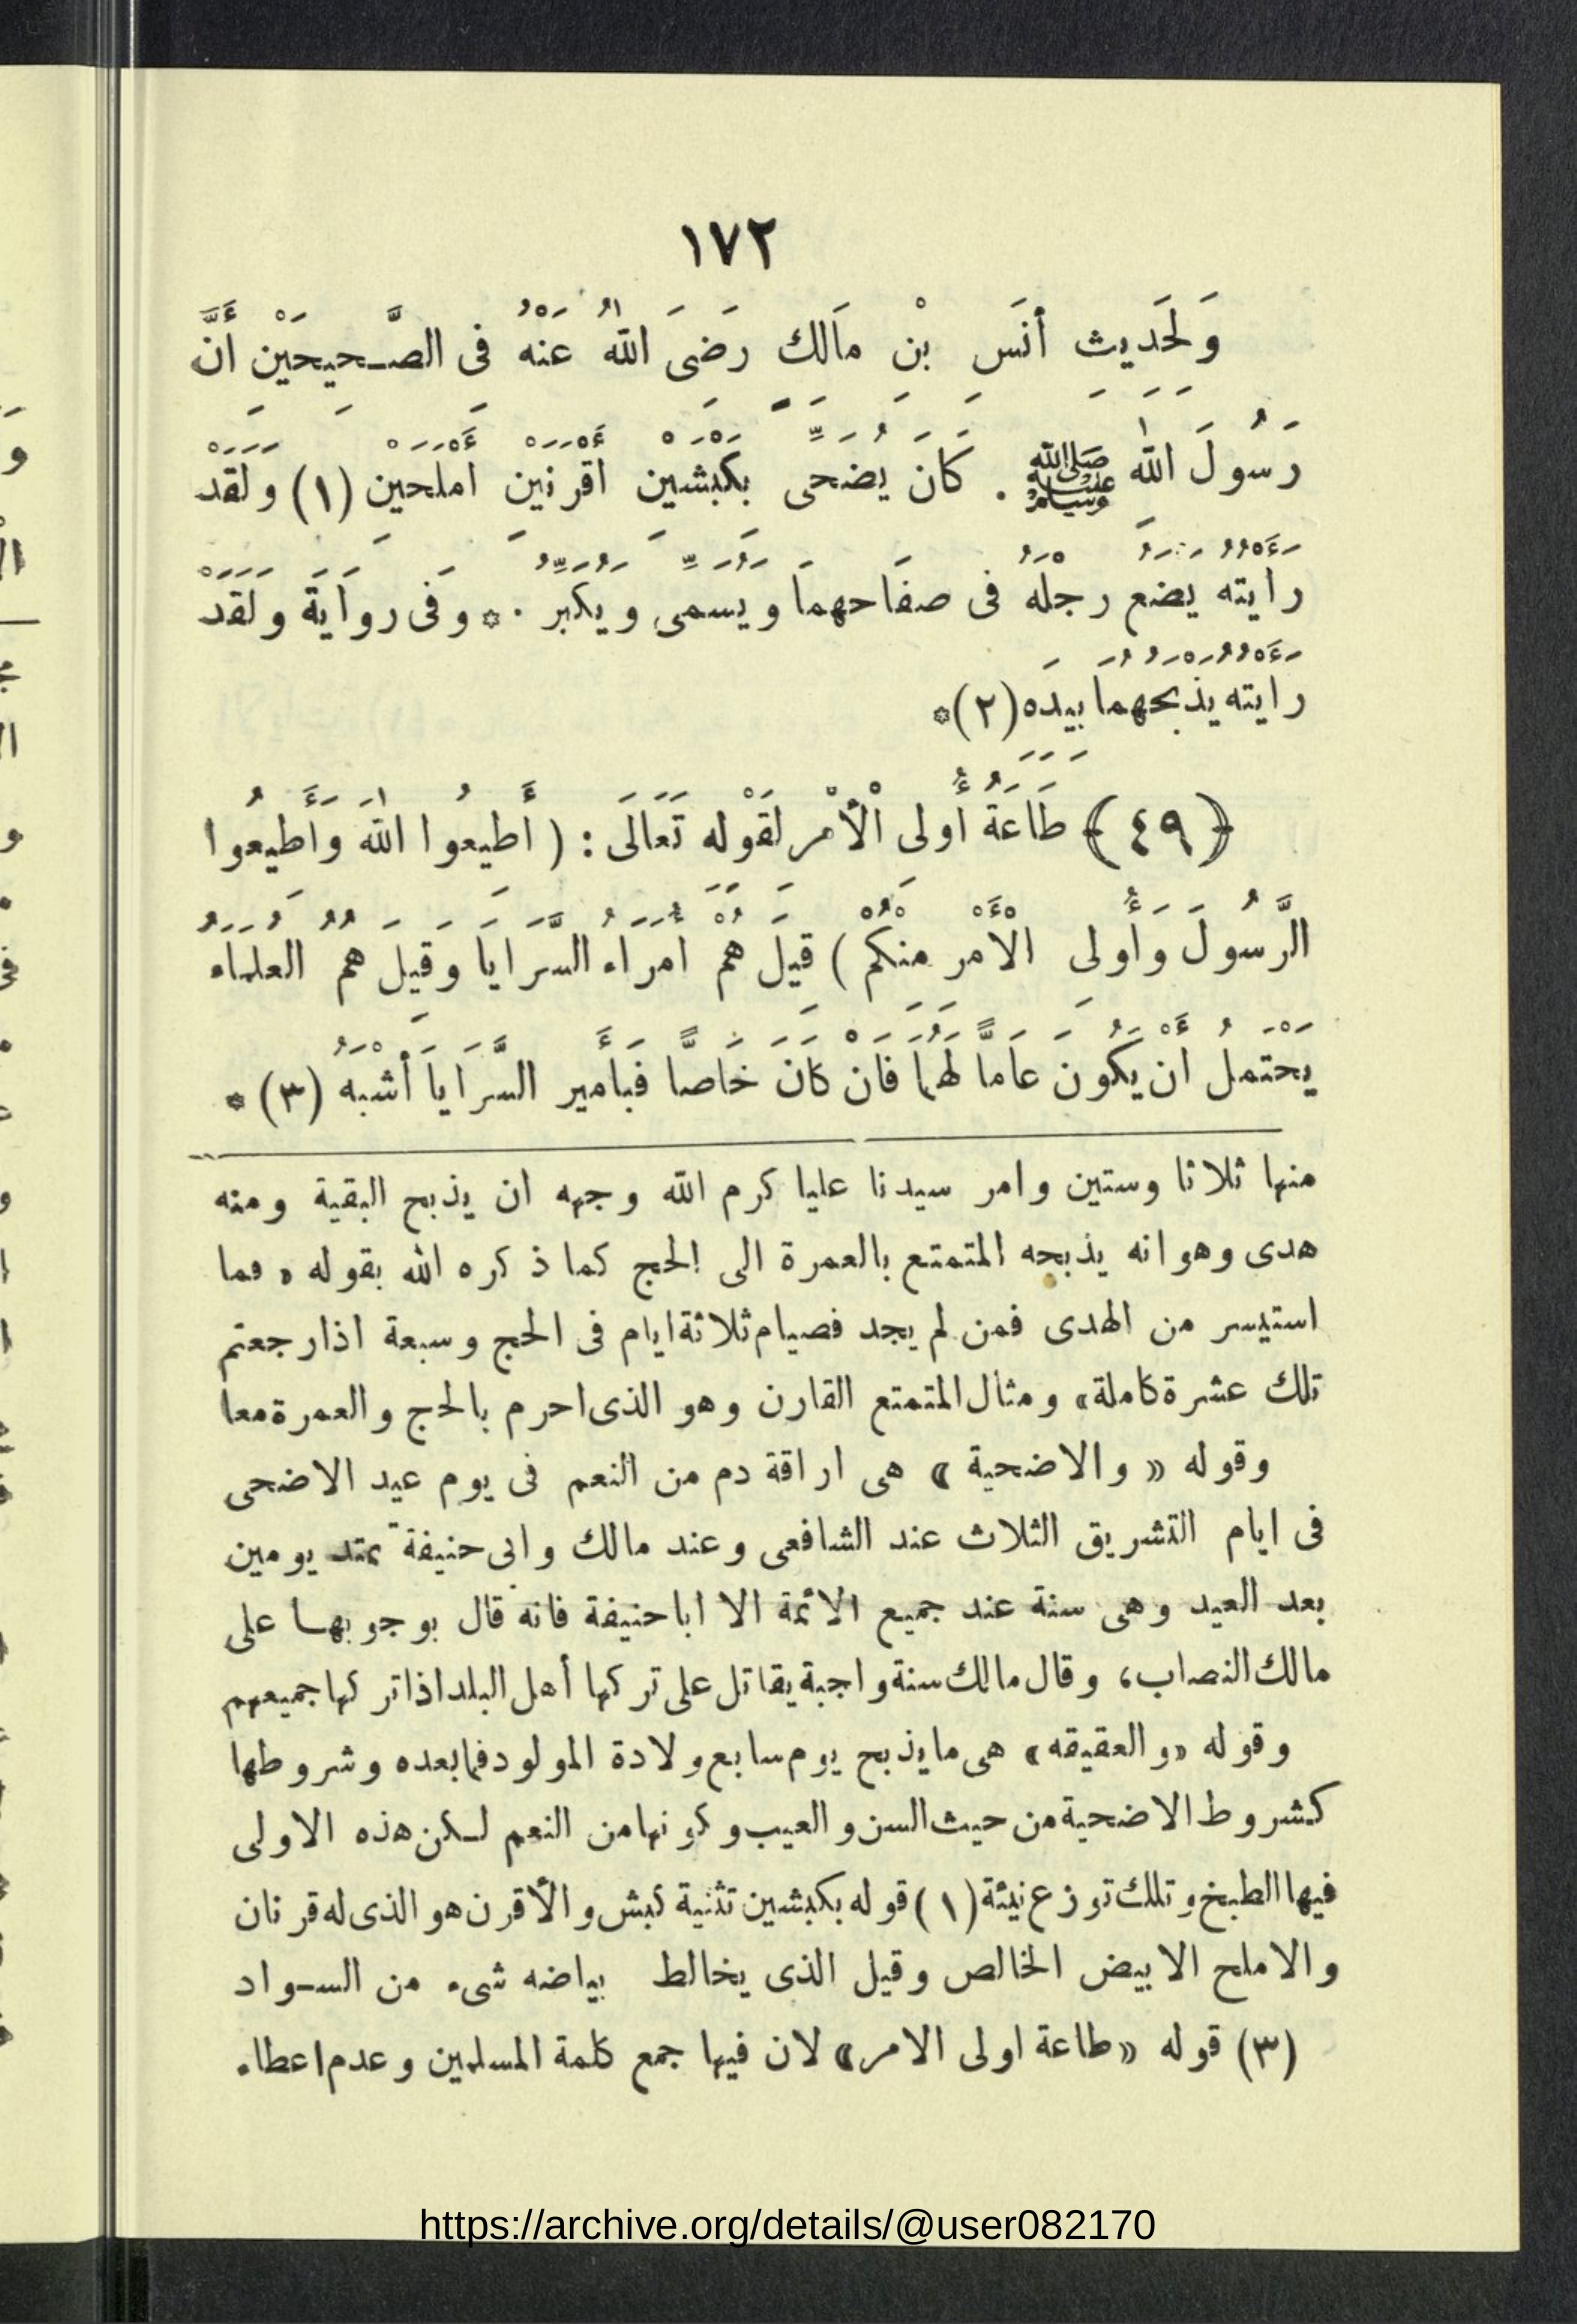 ١٧٢
وَلِحَدِيثِ أَنَسِ بْنِ مَالِكٍ رَضِيَ اللهُ عَنْهُ فِى الصَّحِيحَيْنِ أَنَّ
رَسُولَ اللهِ ﷺ . كَانَ يُضَحِّى بِكَبْشَيْنِ أَقْرَنَيْنِ أَمْلَحَيْنِ (١) وَلَقَدْ
رَأَيْتُهُ يَضَعُ رِجْلَهُ فِى صِفَاحِهِمَا وَيُسَمِّى وَيُكَبِّرُ . * وَفِى رِوَايَةٍ وَلَقَدْ
رَأَيْتُهُ يَذْبَحُهُمَا بِيَدِهِ (٢) *
﴿ ٤٩ ﴾ طَاعَةُ أُولِى الْأَمْرِ لِقَوْلِهِ تَعَالَى : ( أَطِيعُوا اللهَ وَأَطِيعُوا
الرَّسُولَ وَأُولِى الْأَمْرِ مِنْكُمْ ) قِيلَ هُمْ أُمَرَاءُ السَّرَايَا وَقِيلَ هُمُ الْعُلَمَاءُ
يَحْتَمِلُ أَنْ يَكُونَ عَامًّا لَهُمَا فَإِنْ كَانَ خَاصًّا فَبِأَمِيرِ السَّرَايَا أَشْبَهُ (٣) *
منها ثلاثا وستين وامر سيدنا عليا كرم الله وجهه ان يذبح البقية ومنه
هدى وهو انه يذبحه المتمتع بالعمرة الى الحج كما ذكره الله بقوله « فما
استيسر من الهدى فمن لم يجد فصيام ثلاثة ايام فى الحج وسبعة اذا رجعتم
تلك عشرة كاملة» ومثال المتمتع القارن وهو الذى احرم بالحج والعمرة معا
وقوله « والاضحية » هى اراقة دم من النعم فى يوم عيد الاضحى
فى ايام التشريق الثلاث عند الشافعى وعند مالك وابى حنيفة تمتد يومين
بعد العيد وهى سنة عند جميع الائمة الا ابا حنيفة فانه قال بوجوبها على
مالك النصاب، وقال مالك سنة واجبة يقاتل على تركها أهل البلد اذا تركها جميعهم
وقوله «والعقيقه» هى ما يذبح يوم سابع ولادة المولود فما بعده وشروطها
كشروط الاضحية من حيث السن والعيب وكونها من النعم لكن هذه الاولى
فيها الطبخ وتلك توزع نيئة (١) قوله بكبشين تثنية كبش والأقرن هو الذى له قرنان
والاملح الابيض الخالص وقيل الذى يخالط بياضه شىء من السواد
(٣) قوله «طاعة اولى الامر» لان فيها جمع كلمة المسلمين وعدم اعطاء
https://archive.org/details/@user082170